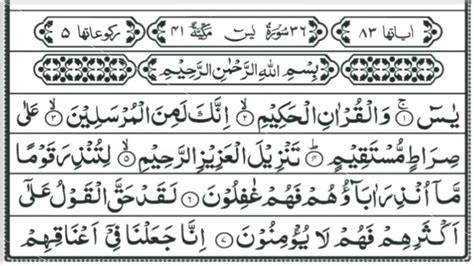 اٰیاتها ۸۳ ۳۶ سُوْرَةُ يٰسٓ مَكِّيَّةٌ ۴۱ رکوعاتها ۵
بِسْمِ اللّٰهِ الرَّحْمٰنِ الرَّحِيْمِ
يٰسٓ ۚ﴿۱﴾ وَالْقُرْاٰنِ الْحَكِيْمِ ۙ﴿۲﴾ اِنَّكَ لَمِنَ الْمُرْسَلِيْنَ ۙ﴿۳﴾ عَلٰى
صِرَاطٍ مُّسْتَقِيْمٍ ؕ﴿۴﴾ تَنْزِيْلَ الْعَزِيْزِ الرَّحِيْمِ ۙ﴿۵﴾ لِتُنْذِرَ قَوْمًا
مَّاۤ اُنْذِرَ اٰبَآؤُهُمْ فَهُمْ غٰفِلُوْنَ ﴿۶﴾ لَقَدْ حَقَّ الْقَوْلُ عَلٰٓى
اَكْثَرِهِمْ فَهُمْ لَا يُؤْمِنُوْنَ ﴿۷﴾ اِنَّا جَعَلْنَا فِيْۤ اَعْنَاقِهِمْ